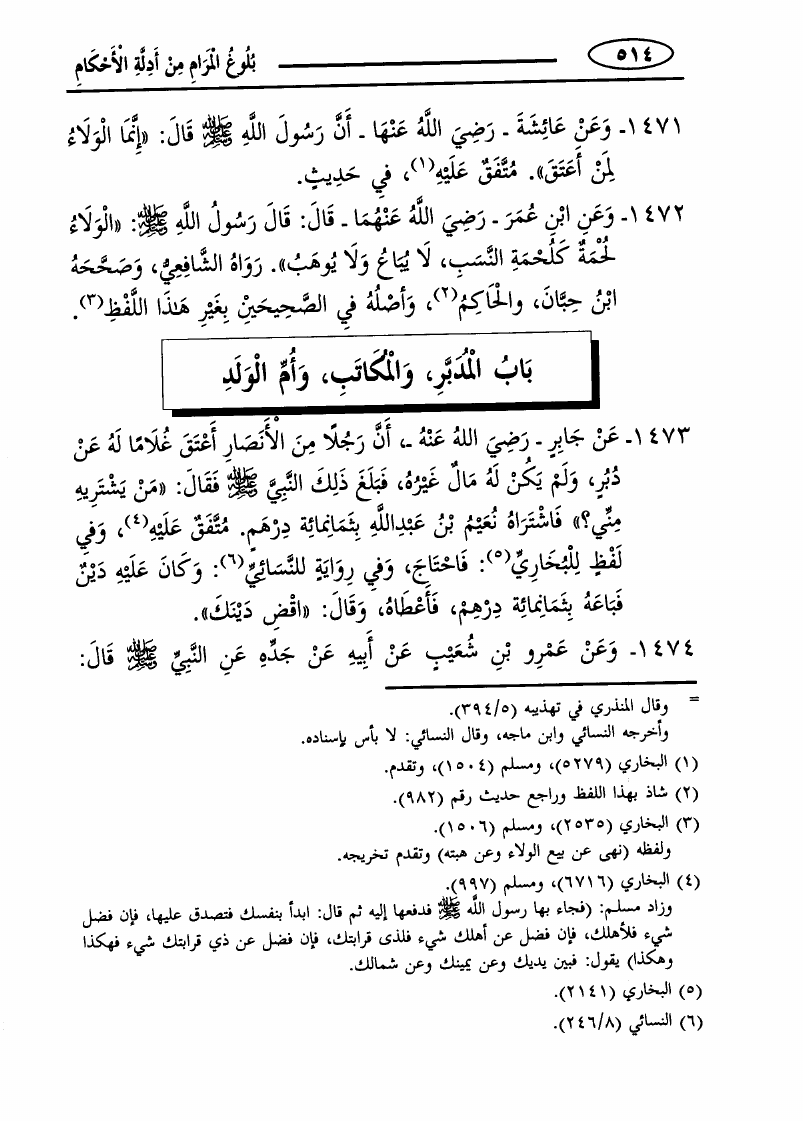 بُلُوغُ الْمَرَامِ مِنْ أَدِلَّةِ الْأَحْكَامِ ٥١٤
١٤٧١ـ وَعَنْ عَائِشَةَ ـ رَضِيَ اللَّهُ عَنْهَا ـ أَنَّ رَسُولَ اللَّهِ ﷺ قَالَ: «إِنَّمَا الْوَلَاءُ
لِمَنْ أَعْتَقَ». مُتَّفَقٌ عَلَيْهِ(١)، فِي حَدِيثٍ.
١٤٧٢ـ وَعَنِ ابْنِ عُمَرَ ـ رَضِيَ اللَّهُ عَنْهُمَا ـ قَالَ: قَالَ رَسُولُ اللَّهِ ﷺ: «الْوَلَاءُ
لُحْمَةٌ كَلُحْمَةِ النَّسَبِ، لَا يُبَاعُ وَلَا يُوهَبُ». رَوَاهُ الشَّافِعِيُّ، وَصَحَّحَهُ
ابْنُ حِبَّانَ، والْحَاكِمُ(٢)، وَأَصْلُهُ فِي الصَّحِيحَيْنِ بِغَيْرِ هَٰذَا اللَّفْظِ(٣).
بَابُ الْمُدَبَّرِ، وَالْمُكَاتَبِ، وَأُمِّ الْوَلَدِ
١٤٧٣ـ عَنْ جَابِرٍ ـ رَضِيَ اللهُ عَنْهُ ـ، أَنَّ رَجُلًا مِنَ الْأَنْصَارِ أَعْتَقَ غُلَامًا لَهُ عَنْ
دُبُرٍ، وَلَمْ يَكُنْ لَهُ مَالٌ غَيْرُهُ، فَبَلَغَ ذَلِكَ النَّبِيَّ ﷺ فَقَالَ: «مَنْ يَشْتَرِيهِ
مِنِّي؟» فَاشْتَرَاهُ نُعَيْمُ بْنُ عَبْدِاللَّهِ بِثَمَانِمائَة دِرْهَمٍ. مُتَّفَقٌ عَلَيْهِ(٤)، وَفِي
لَفْظٍ لِلْبُخَارِيِّ(٥): فَاحْتَاجَ، وَفِي رِوَايَةٍ للنَّسَائِيِّ(٦): وَكَانَ عَلَيْهِ دَيْنٌ
فَبَاعَهُ بِثَمَانِمائَة دِرْهِمْ، فَأَعْطَاهُ، وَقَالَ: «اقْضِ دَيْنَكَ».
١٤٧٤ـ وَعَنْ عَمْرِو بْنِ شُعَيْبٍ عَنْ أَبِيهِ عَنْ جَدِّهِ عَنِ النَّبِيِّ ﷺ قَالَ:
= وقال المنذري في تهذيبه (٣٩٤/٥).
وأخرجه النسائي وابن ماجه، وقال النسائي: لا بأس بإسناده.
(١) البخاري (٥٢٧٩)، ومسلم (١٥٠٤)، وتقدم.
(٢) شاذ بهذا اللفظ وراجع حديث رقم (٩٨٢).
(٣) البخاري (٢٥٣٥)، ومسلم (١٥٠٦).
ولفظه (نهى عن بيع الولاء وعن هبته) وتقدم تخريجه.
(٤) البخاري (٦٧١٦)، ومسلم (٩٩٧).
وزاد مسلم: (فجاء بها رسول اللَّه ﷺ فدفعها إليه ثم قال: ابدأ بنفسك فتصدق عليها، فإن فضل
شيء فلأهلك، فإن فضل عن أهلك شيء فلذى قرابتك، فإن فضل عن ذي قرابتك شيء فهكذا
وهكذا) يقول: فبين يديك وعن يمينك وعن شمالك.
(٥) البخاري (٢١٤١).
(٦) النسائي (٢٤٦/٨).